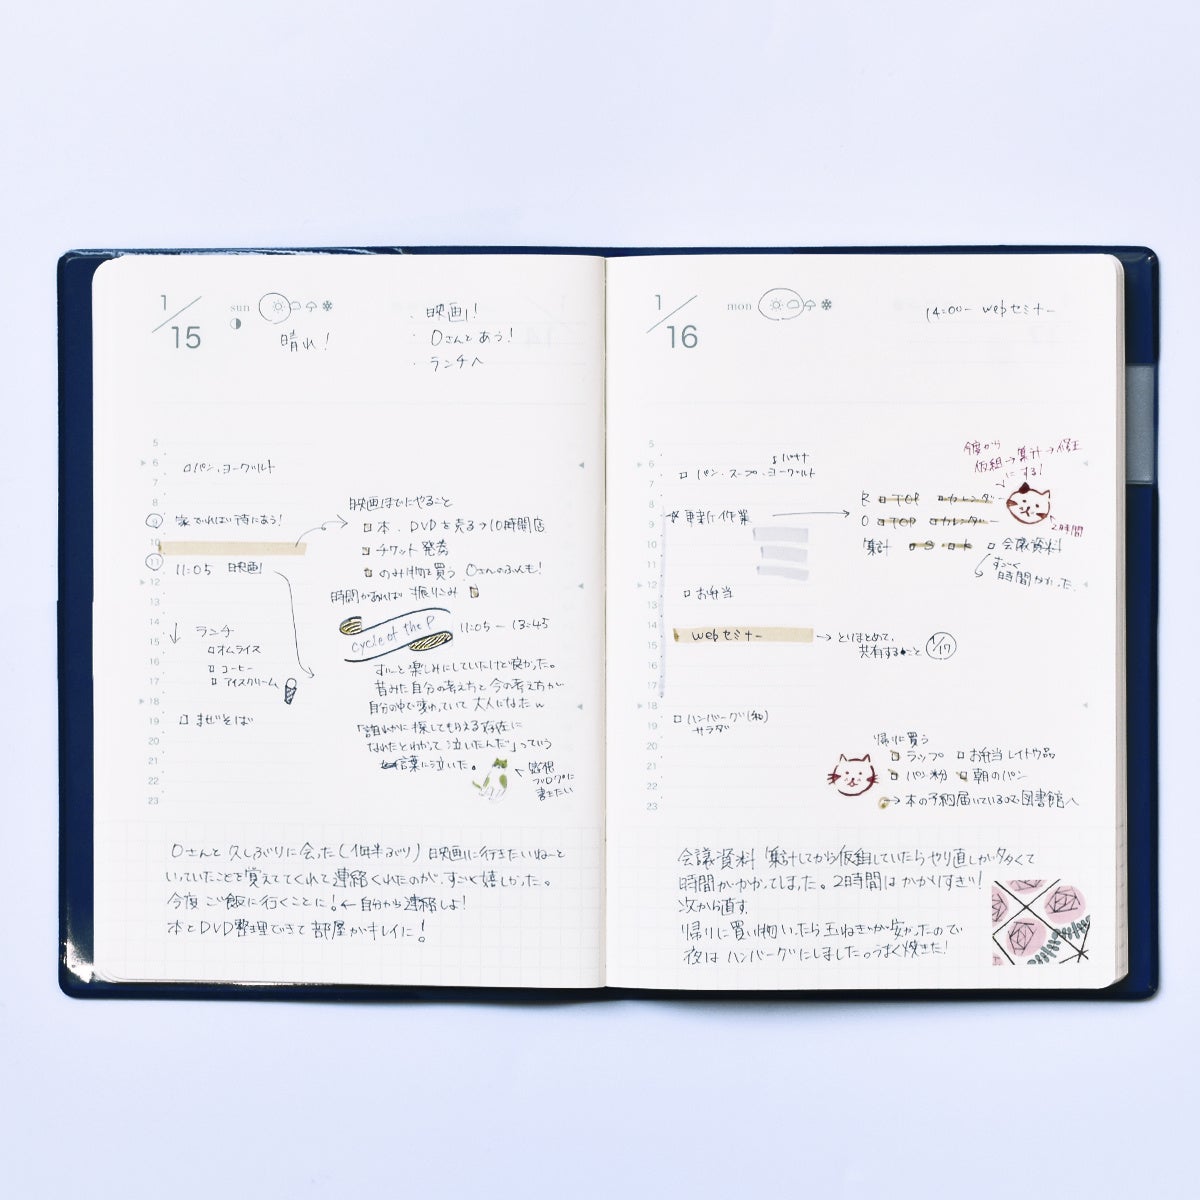 1/15 sun
晴れ!
・映画!
・Oさんとあう!
・ランチへ
5
6 パン、ヨーグルト
7
8
9
10
11 11:05 映画!
12
13
14 ランチ
15 オムライス
16 コーヒー
17 アイスクリーム
18
19 まぜそば
20
21
22
23
映画までにやること
本、DVDを売る→10時開店
チケット発券
のみ物を買う Oさんのぶんも!
時間があれば 振りこみ
cycle of the P 11:05-13:45
ずっと楽しみにしていたけど良かった。
昔みた自分の考え方と今の考え方が
自分の中で変わっていて大人になたw
「誰かに探してもらえる存在に
なれたとわかって泣いたんだ」っていう
言葉に泣いた。
感想
ブログに
書きたい
Oさんと久しぶりに会った(1年半ぶり) 映画に行きたいねーと
いっていたことを覚えててくれて連絡くれたのが、すごく嬉しかった。
今度ご飯に行くことに!←自分から連絡しよ!
本とDVD整理できて部屋がキレイに!
1/16 mon
14:00- webセミナー
5
6 パン・スープ・ヨーグルト
バナナ
7
8 更新作業
9
10
11
12 お弁当
13
14 webセミナー
15
16
17
18 ハンバーグ(和)
サラダ
19
20
21
22
23
今度から
仮組→集計→修正
にする!
R TOP カレンダー
O TOP カレンダー
2時間
集計 S K 会議資料
すごく
時間かかった
とりまとめて、
共有すること 1/17
帰りに買う
ラップ お弁当レイトウ品
パン粉 朝のパン
→本の予約届いているので図書館へ
会議資料 集計してから仮組していたらやり直しが多くて
時間がかかってしまった。2時間はかかりすぎ!
次から直す。
帰りに買い物いったら玉ねぎが安かったので
夜はハンバーグにしました。うまく焼きた!